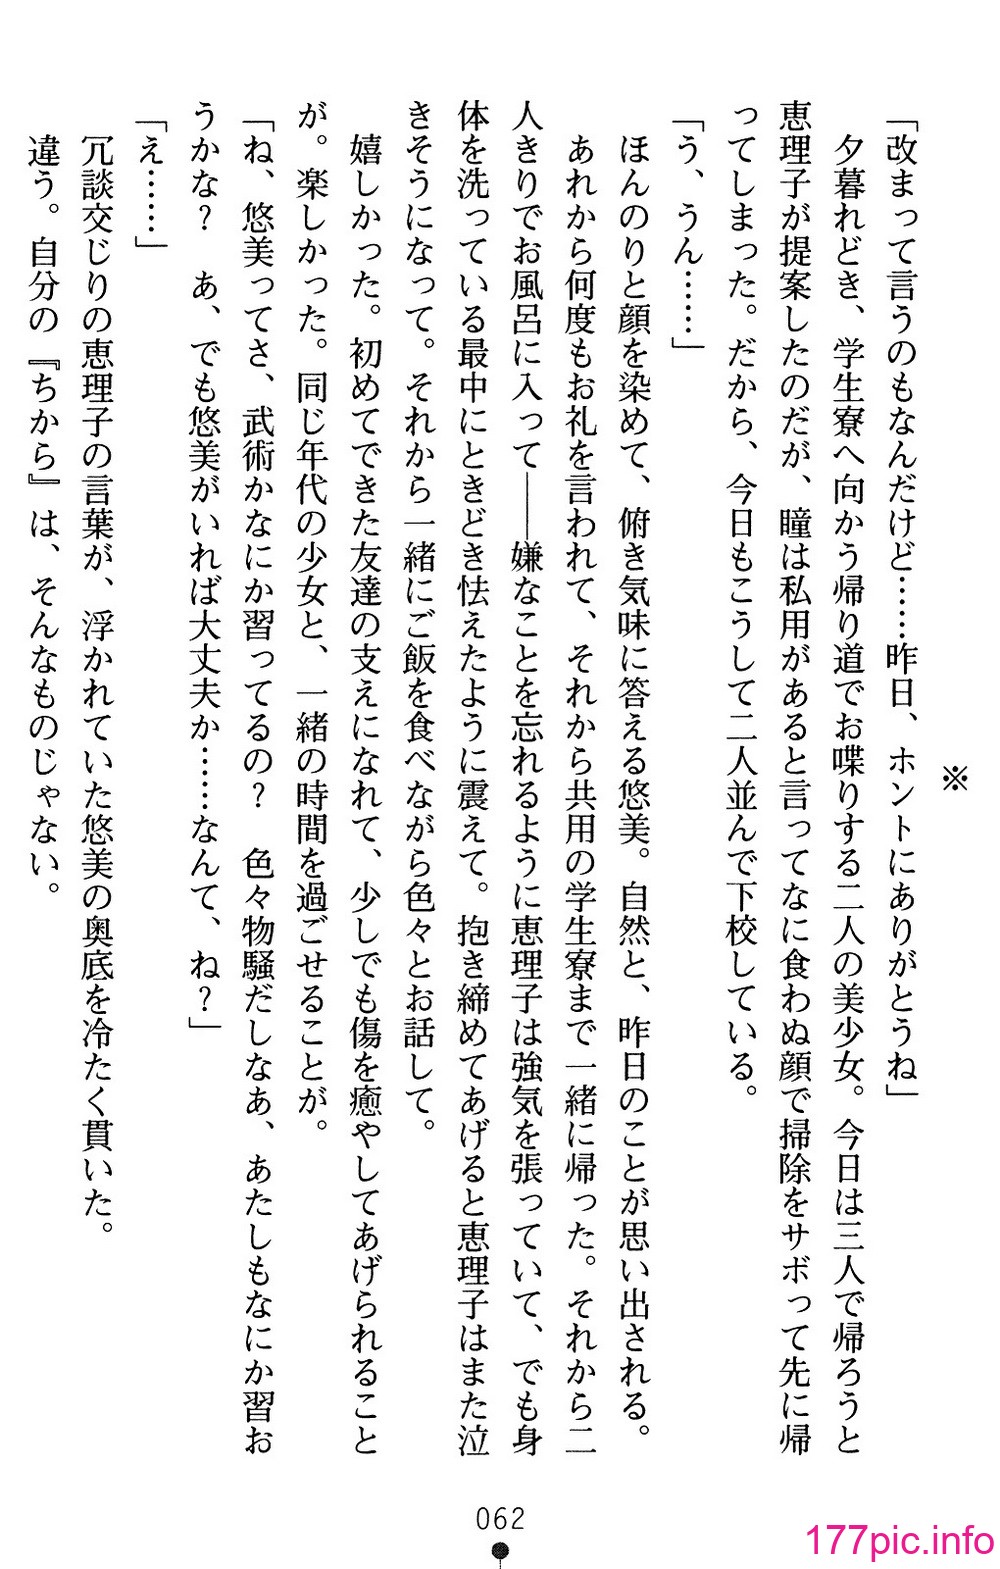 ※
「改まって言うのもなんだけど……昨日、ホントにありがとうね」
夕暮れどき、学生寮へ向かう帰り道でお喋りする二人の美少女。今日は三人で帰ろうと
恵理子が提案したのだが、瞳は私用があると言ってなに食わぬ顔で掃除をサボって先に帰
ってしまった。だから、今日もこうして二人並んで下校している。
「う、うん……」
ほんのりと顔を染めて、俯き気味に答える悠美。自然と、昨日のことが思い出される。
あれから何度もお礼を言われて、それから共用の学生寮まで一緒に帰った。それから二
人きりでお風呂に入って――嫌なことを忘れるように恵理子は強気を張っていて、でも身
体を洗っている最中にときどき怯えたように震えて。抱き締めてあげると恵理子はまた泣
きそうになって。それから一緒にご飯を食べながら色々とお話して。
嬉しかった。初めてできた友達の支えになれて、少しでも傷を癒やしてあげられること
が。楽しかった。同じ年代の少女と、一緒の時間を過ごせることが。
「ね、悠美ってさ、武術かなにか習ってるの？　色々物騒だしなあ、あたしもなにか習お
うかな？　あ、でも悠美がいれば大丈夫か……なんて、ね？」
「え……」
冗談交じりの恵理子の言葉が、浮かれていた悠美の奥底を冷たく貫いた。
違う。自分の『ちから』は、そんなものじゃない。
062
177pic.info